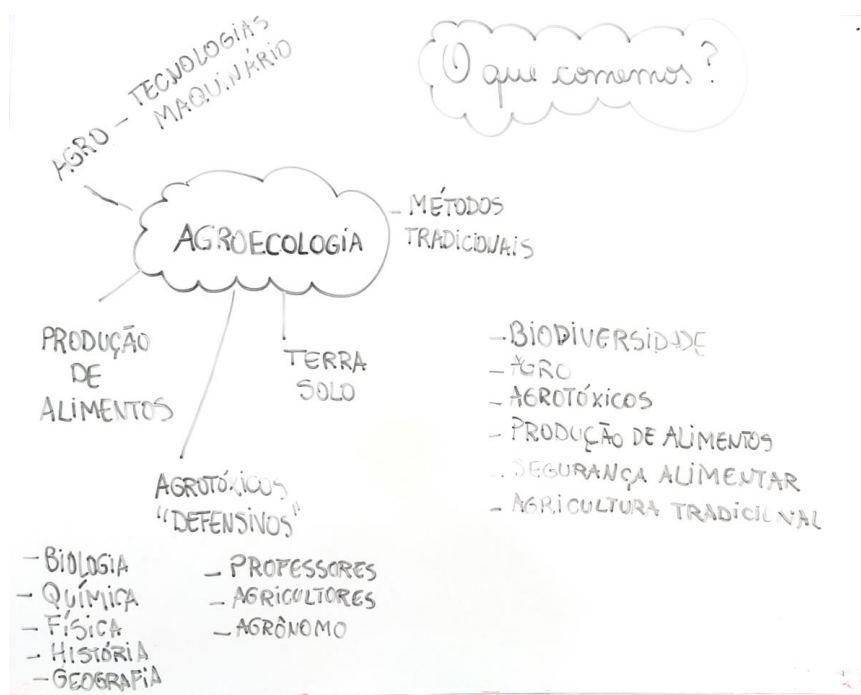 AGRO – TECNOLOGIAS
MAQUINÁRIO
O que comemos?
AGROECOLOGIA
- MÉTODOS
TRADICIONAIS
PRODUÇÃO
DE
ALIMENTOS
TERRA
SOLO
AGROTÓXICOS
"DEFENSIVOS"
- BIODIVERSIDADE
- AGRO
- AGROTÓXICOS
- PRODUÇÃO DE ALIMENTOS
- SEGURANÇA ALIMENTAR
- AGRICULTURA TRADICIONAL
- BIOLOGIA
- QUÍMICA
- FÍSICA
- HISTÓRIA
- GEOGRAFIA
- PROFESSORES
- AGRICULTORES
- AGRÔNOMO